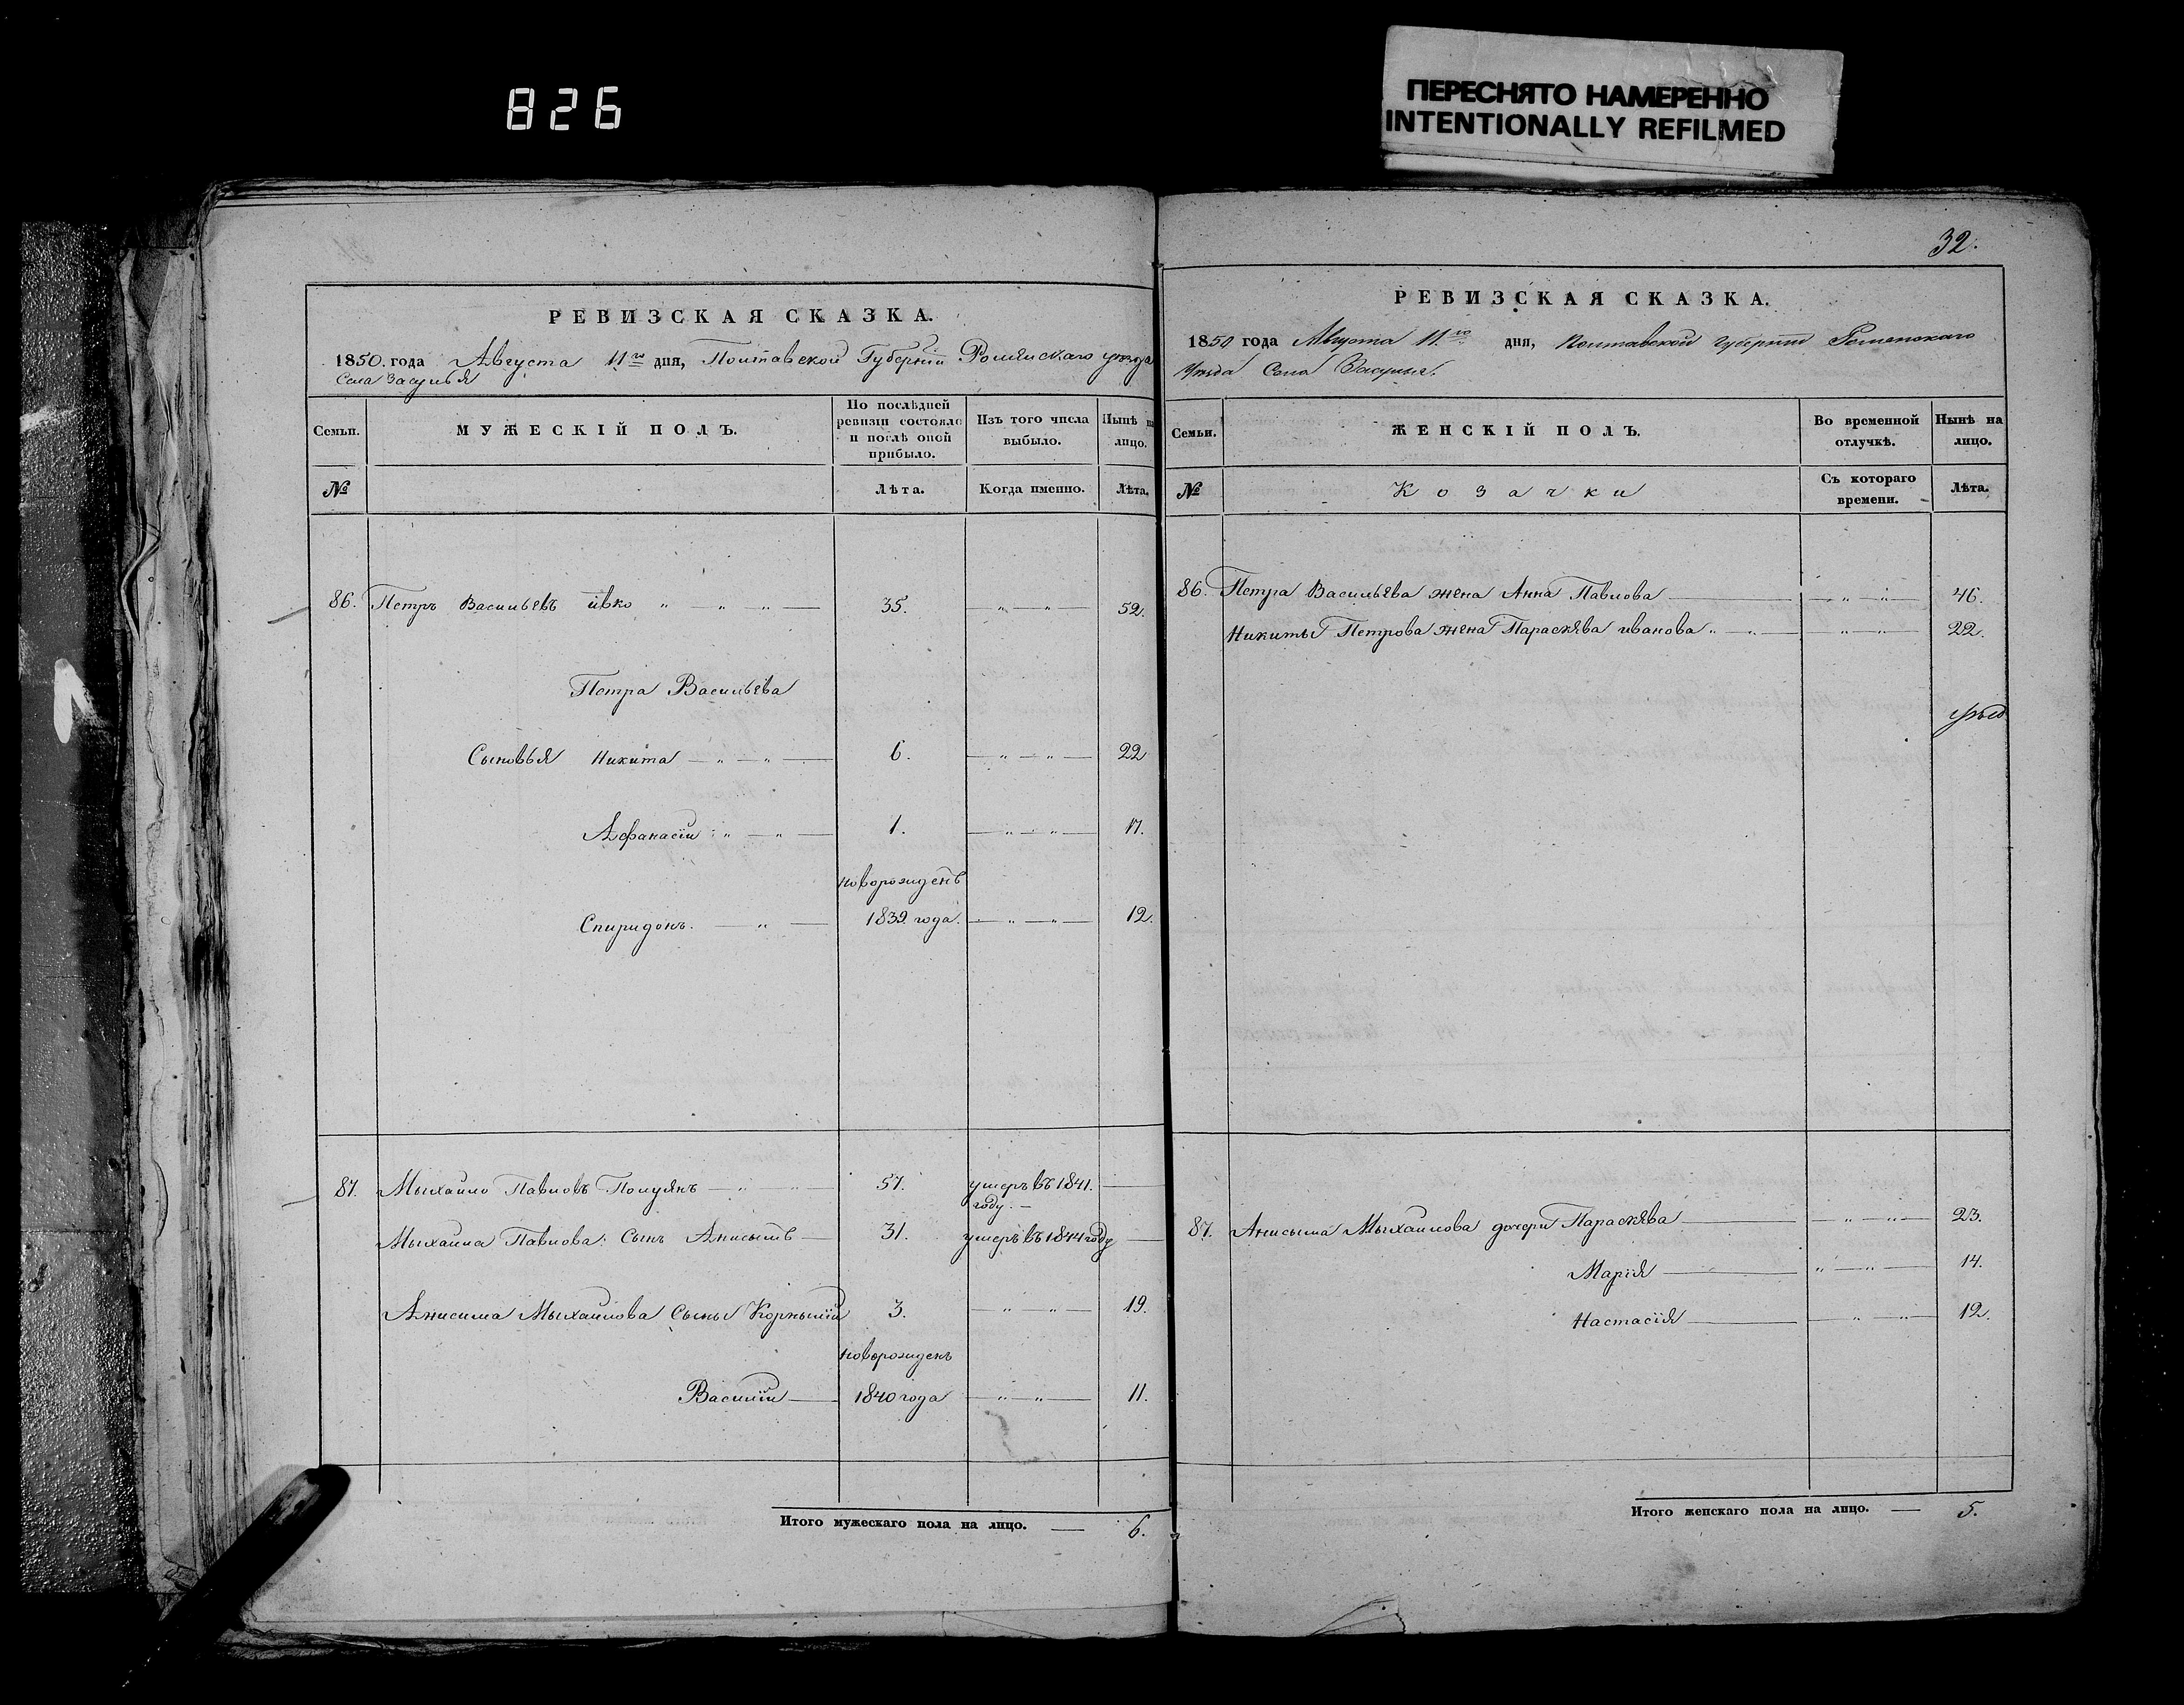 826
ПЕРЕСНЯТО НАМЕРЕННО
INTENTIONALLY REFILMED
РЕВИЗСКАЯ СКАЗКА.
1850. года Августа 11го дня, Полтавской Губернiи Роменскаго уѣзда
Села Засулья
Семьи.
МУЖЕСКІЙ ПОЛЪ.
По послѣдней ревизіи состояло и послѣ оной прибыло.
Изъ того числа выбыло.
Нынѣ на лицо.
№
Лѣта.
Когда именно.
Лѣта.
86. Петръ Васильевъ ивко " — " — " — 35. " — " — 52.
Петра Васильева
Сыновья Никита — " — " — 6. — " — " — 22
Афанасiй " — " — 1. — " — " — 17.
новорожденъ
Спиридонъ. — " — 1839 года. — " — " — 12.
87. Мыхайло Павловъ Полуянъ — " — 57. умеръ въ 1841. —
году. —
Мыхайла Павлова Сынъ Анисымъ — 31. умеръ въ 1844 году —
Анисима Мыхайлова Сыны Корнылiй 3. — " — " — 19.
новорожденъ
Василiй — 1840 года — " — " — 11.
Итого мужескаго пола на лицо. — 6.
32.
РЕВИЗСКАЯ СКАЗКА.
1850 года Августа 11го дня, Полтавской губернiи Роменскаго
Уѣзда Села Засулья.
Семьи.
ЖЕНСКІЙ ПОЛЪ.
Во временной отлучкѣ.
Нынѣ на лицо.
№
Козачки
Съ котораго времени.
Лѣта.
86. Петра Васильева жена Анна Павлова — " — " — 46.
Никиты Петрова жена Параскева иванова " — " — " — " — 22.
87. Анисыма Мыхайлова дочери Параскева — " — " — 23.
Марiя — " — " — 14.
Настасiя — " — " — 12.
Итого женскаго пола на лицо. — 5.